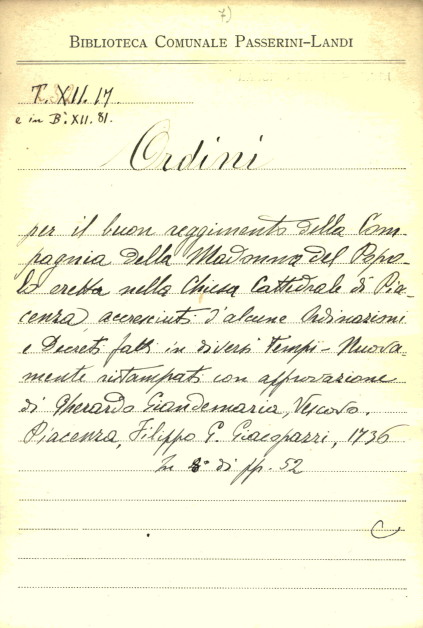 7)
BIBLIOTECA COMUNALE PASSERINI-LANDI
T. XII. 17.
e in B. XII. 81.
Ordini
per il buon reggimento della Com-
pagnia della Madonna del Popo-
lo eretta nella Chiesa Cattedrale di Pia-
cenza, accresciuti d'alcune Ordinazioni
e Decreti fatti in diversi tempi - Nuova-
mente ristampati con approvazione
di Gherardo Giandemaria, Vescovo.
Piacenza, Filippo G. Giacopazzi, 1736
In 8° di pp. 52